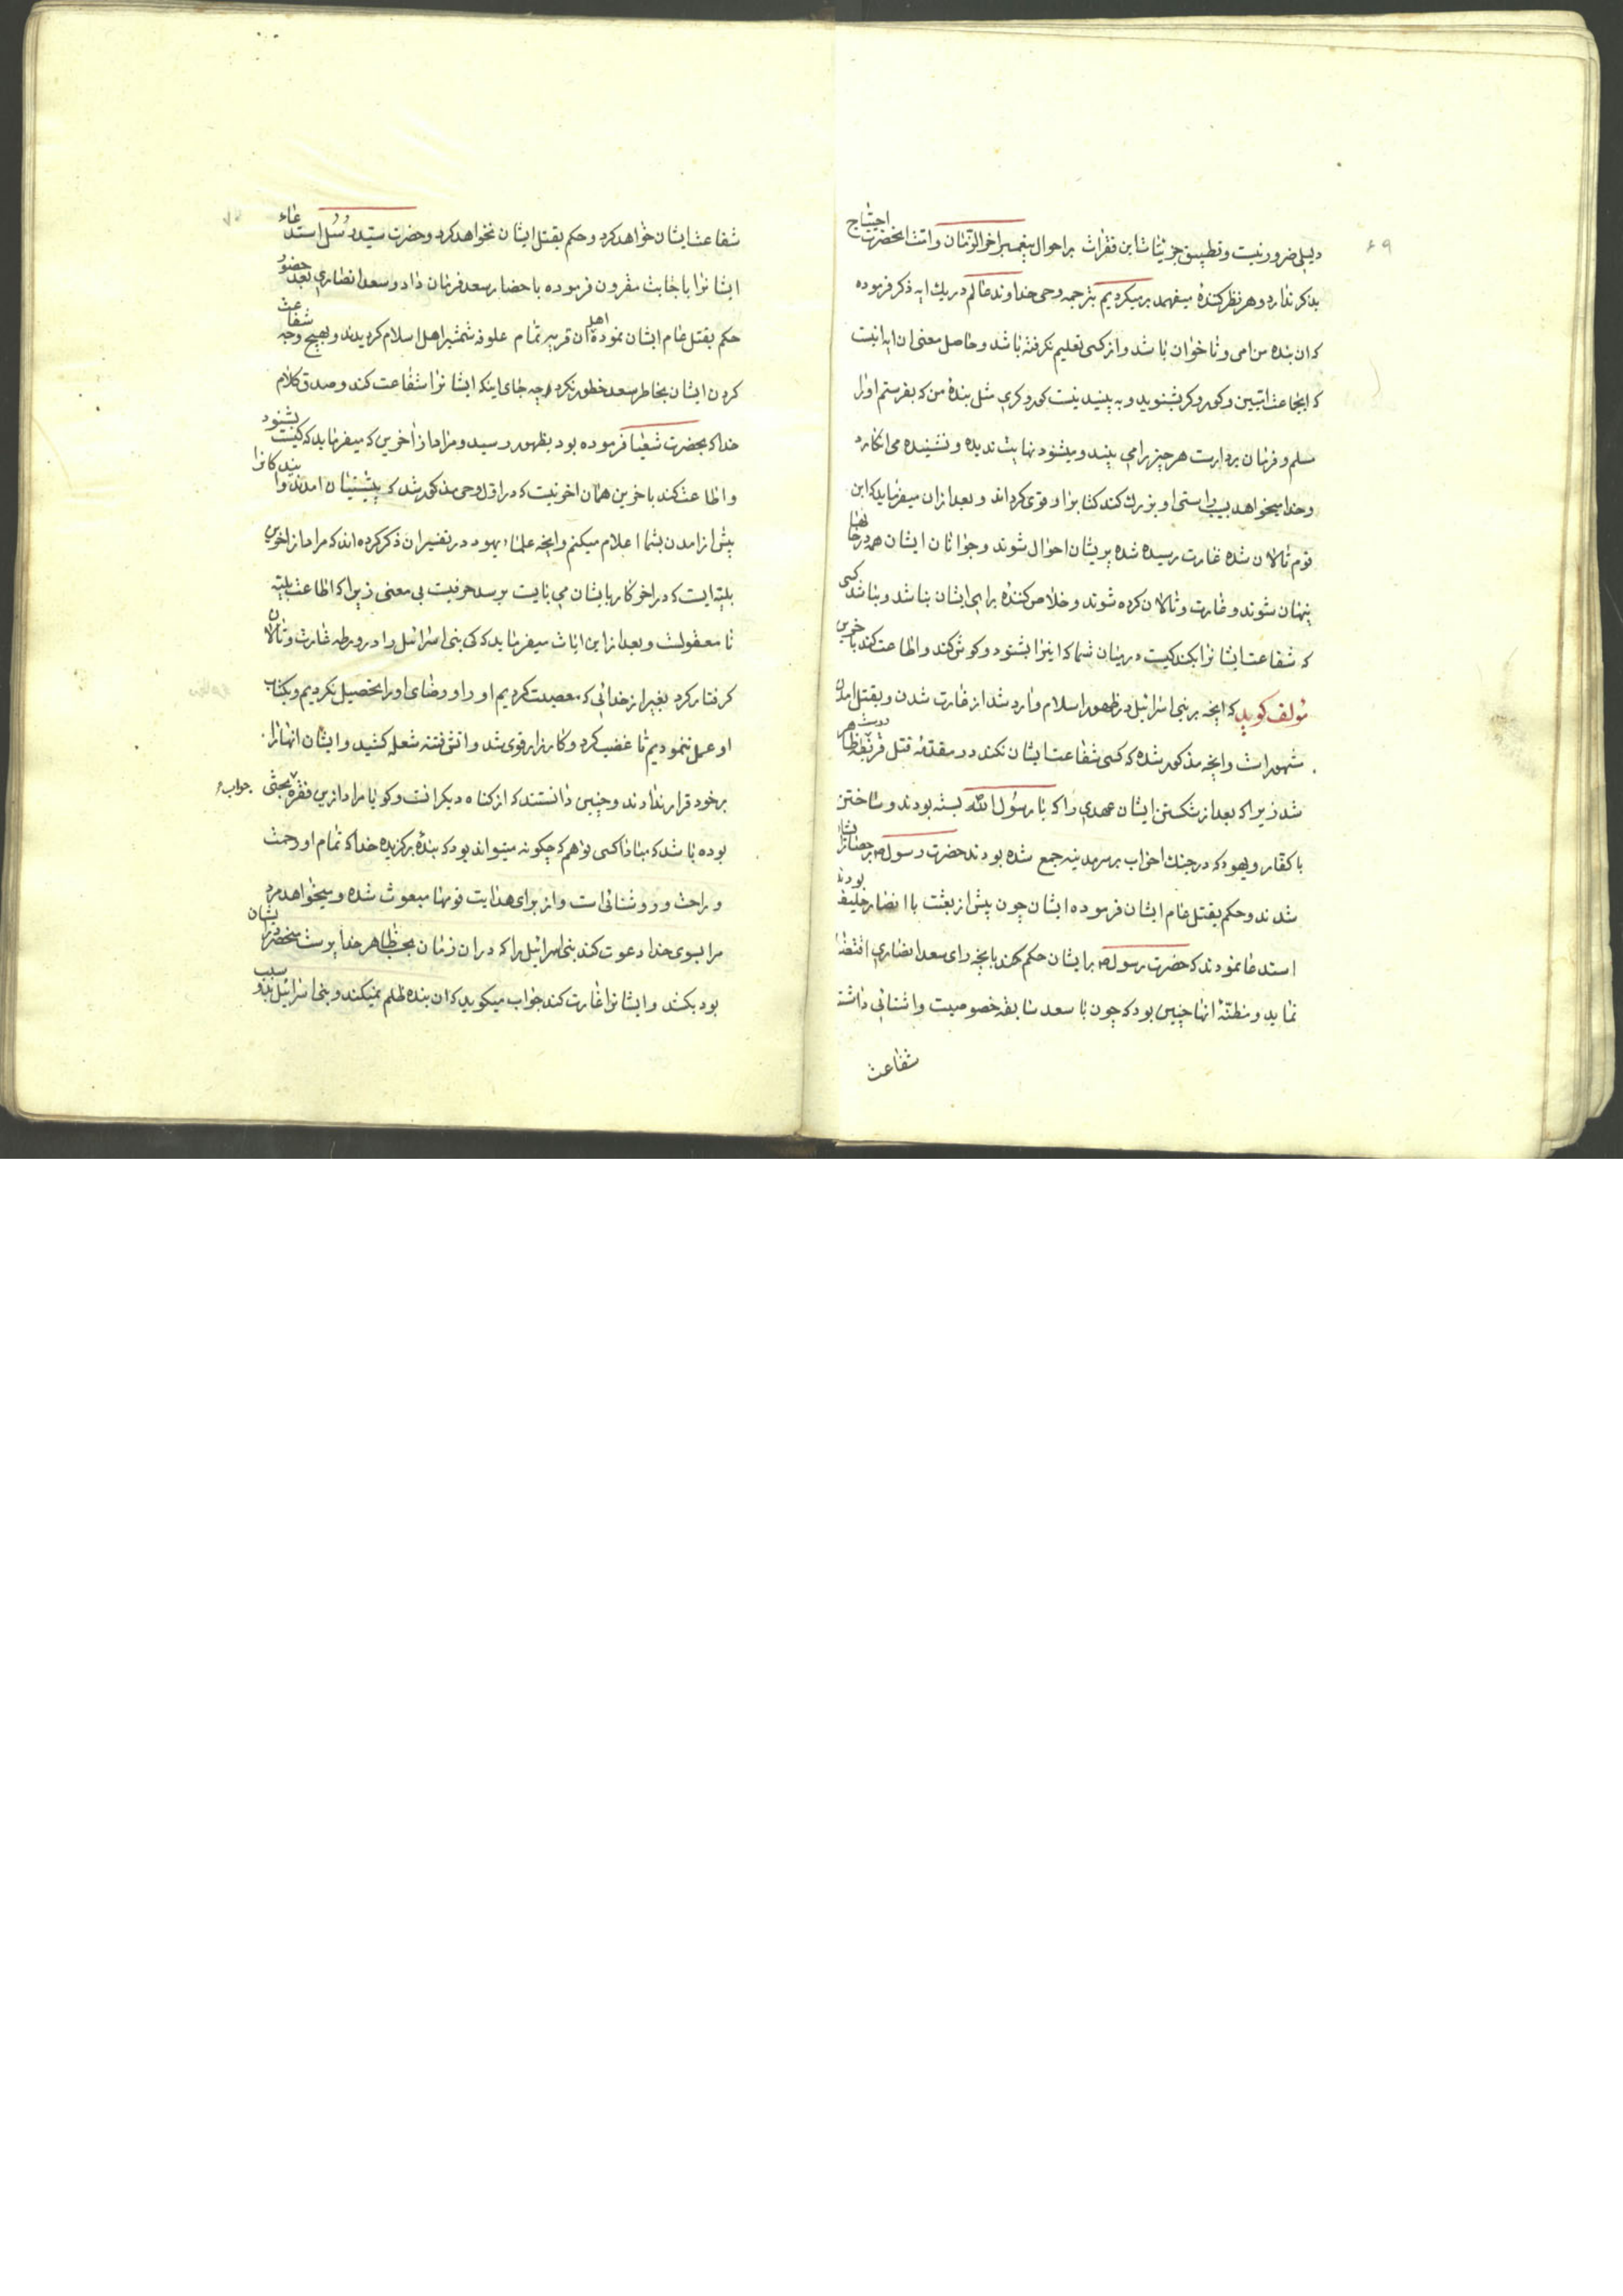 ۶۹
دلیلی ضرور نیست و تطبیق جزئیات این فقرات بر احوال پیغمبر اخر الزمان و امت انحضرت احتیاج
بذکر ندارد و هر نظر کنندۀ میفهمد بر میگردیم بترجمه وحی خداوند عالم در یك ایه ذکر فرموده
که ان بنده من امی و نا خوان باشد و از کسی تعلیم نگرفته باشد و حاصل معنی ان ایه اینست
که ایجماعت امتیین و کور و کر بشنوید و به بینید نیست کور و کری مثل بندۀ من که بفرستم او را
مسلم و فرمان برداریست هر چیز را می بیند و میشنود نهایت ندیده و نشنیده می انکارد
و خدا میخواهد بسبب راستی او بزرك کند کتابرا و قوی کرداند و بعد از ان میفرماید که این
قوم تالان شده غارت رسیده شده پریشان احوال شوند و جوانان ایشان همه در خانها
پنهان شوند و غارت و تالان کرده شوند و خلاص کنندۀ برای ایشان نباشد و نباشد کسی
که شفاعت ایشانرا بکند کیست در میان شما که اینرا بشنود و کوش کند و اطاعت کند باخرین
مؤلف کوید که انچه بر بنی اسرائیل در ظهور اسلام وارد شد از غارت شدن و بقتل امدن
مشهور است و انچه مذکور شده که کسی شفاعت ایشان نکند در مقدمۀ قتل قریظه ظاهر
شد زیرا که بعد از شکستن ایشان عهدی را که با رسول الله بسته بودند و ساختن
با کفار و یهود که در جنك احزاب بر سر مدینه جمع شده بودند حضرت رسول
شدند و حکم بقتل عام ایشان فرموده ایشان چون پیش از بعثت با انصار حلیف بودند
استدعا نمودند که حضرت رسول بر ایشان حکم کند بانچه رای سعد انصاری اقتضا
نماید و مظنۀ انها چنین بود که چون با سعد سابقه خصوصیت و اشنائی داشت
شفاعت
شفاعت ایشان خواهد کرد و حکم بقتل ایشان نخواهد کرد و حضرت سید رسل استدعاء
ایشانرا باجابت مقرون فرموده باحضار سعد فرمان داد و سعد انصاری بعد حضور
حکم بقتل عام ایشان نموده اهل ان قریه تمام علوفه شمشیر اهل اسلام کردیدند و بهیچ وجه شفاعت
کردن ایشان بخاطر سعد خطور نکرد چه جای اینکه ایشانرا شفاعت کند و صدق کلام
خدا که بحضرت شعیا فرموده بود بظهور رسید و مراد از اخرین که میفرماید که کیست بشنود
و اطاعت کند باخرین همان اخرینست که در اول وحی مذکور شد که پیشینیان امدند و ایندکانرا
پیش از امدن بشما اعلام میکنم و انچه علماء یهود در تفسیر ان ذکر کرده اند که مراد از اخرین
بلیۀ ایست که در اخر کارها بایشان می بایست برسد حرفیست بی معنی زیرا که اطاعت بلیه
نا معقولست و بعد از این ایات میفرماید که کی بنی اسرائیل را در ورطه غارت و تالان
کرفتار کرد بغیر از خدائی که معصیت کردیم او را و رضای او را تحصیل نکردیم و بکتاب
او عمل ننمودیم تا غضب کرد و کارزار قوی شد و اتش فتنه شعله کشید و ایشان انها را
بر خود قرار ندادند و چنین دانستند که از کناه دیکرانست و کویا مراد ازین فقره جواب بحثی
بوده باشد که مبادا کسی توهم کند چکونه میتواند بود که بندۀ برکزیده خدا که تمام او رحمت
و راحت و روشنائی است و از برای هدایت قومها مبعوث شده و میخواهد مردم
را بسوی خدا دعوت کند بنی اسرائیل را که در ان زمان بحسب ظاهر خدا پرست منحصر در ایشان
بود بکشد و ایشانرا غارت کند جواب میکوید که ان بنده ظلم نمیکند و بنی اسرائیل بسبب